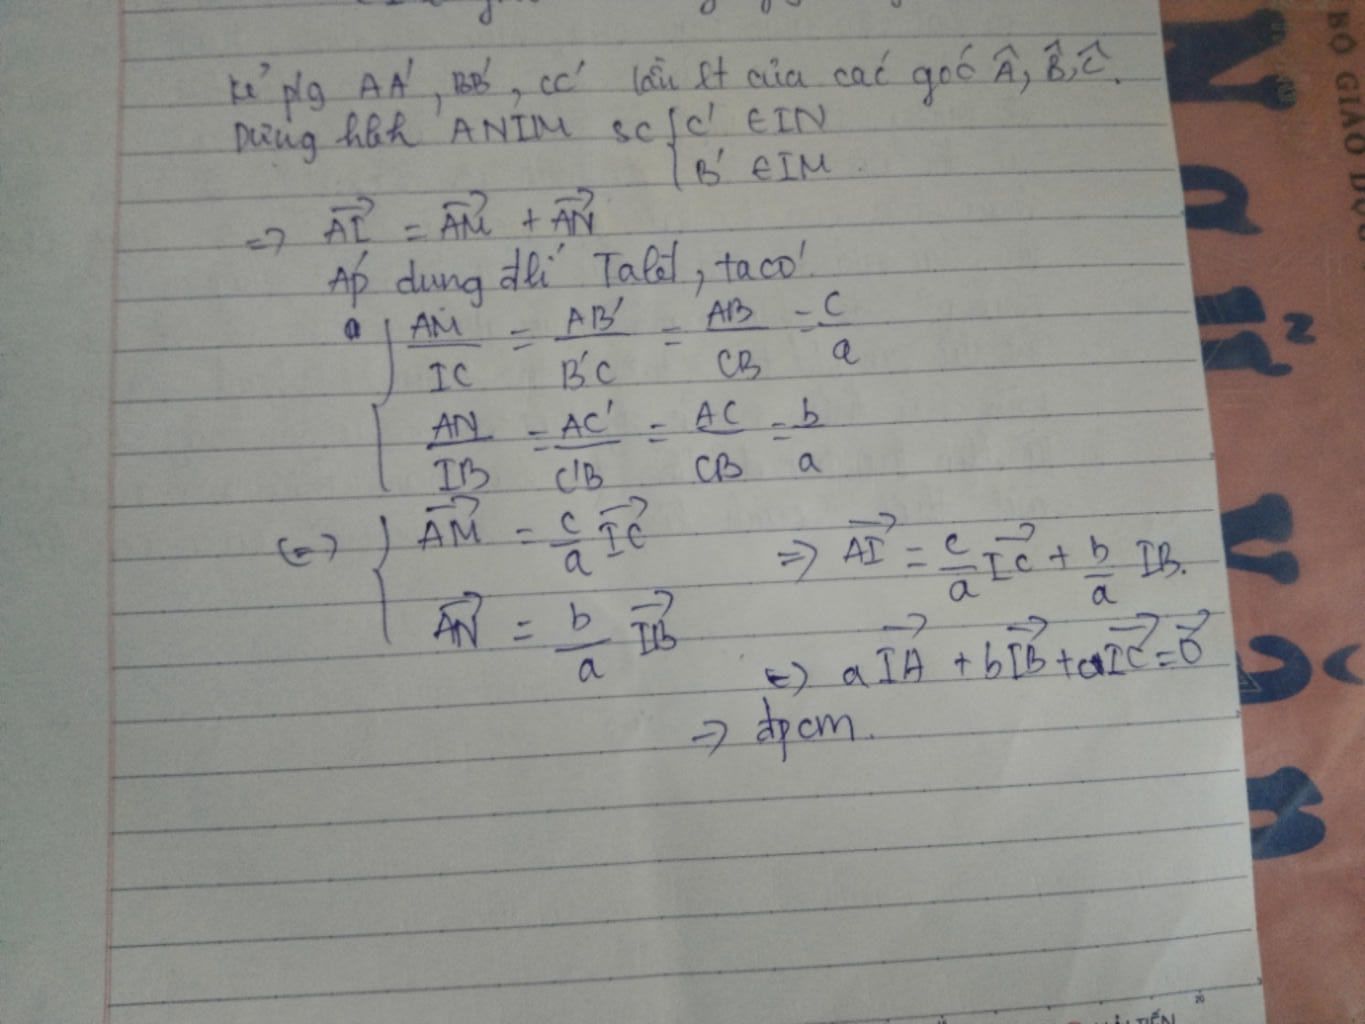 kẻ p/g AA', BB', CC' lần lt của các góc Â, B̂, Ĉ.
Dựng hbh ANIM sc { C' ∈ IN
B' ∈ IM.
=> \vec{AI} = \vec{AM} + \vec{AN}
Áp dụng đlí Talét, ta có
{ AM/IC = AB'/B'C = AB/CB = c/a
AN/IB = AC'/C'B = AC/CB = b/a
(=) { \vec{AM} = c/a \vec{IC} => \vec{AI} = c/a \vec{IC} + b/a IB.
\vec{AN} = b/a \vec{IB}
(=) a\vec{IA} + b\vec{IB} + a\vec{IC} = \vec{0}
=> đpcm.
BỘ GIÁO DỤC
Ngữ
văn
20